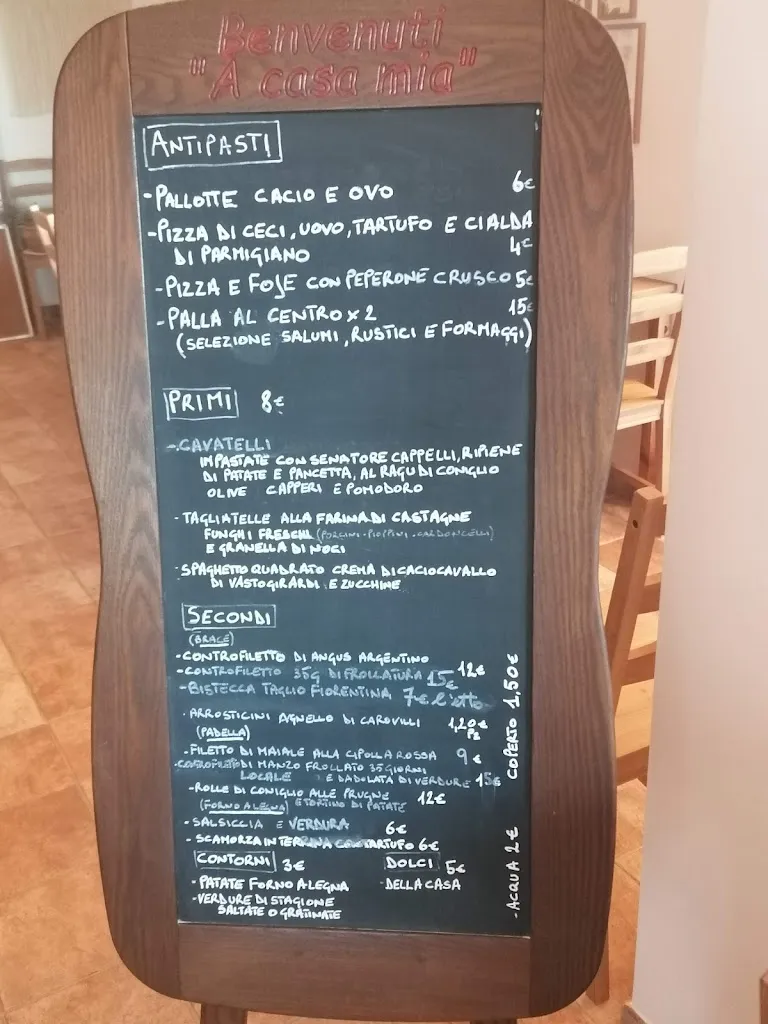 Benvenuti
"A casa mia"
ANTIPASTI
-PALLOTTE CACIO E OVO 6€
-PIZZA DI CECI, UOVO, TARTUFO E CIALDA
DI PARMIGIANO 4€
-PIZZA E FOJE CON PEPERONE CRUSCO 5€
-PALLA AL CENTRO x 2 15€
(SELEZIONE SALUMI, RUSTICI E FORMAGGI)
PRIMI 8€
-CAVATELLI
IMPASTATE CON SENATORE CAPPELLI, RIPIENE
DI PATATE E PANCETTA, AL RAGU DI CONIGLIO
OLIVE CAPPERI E POMODORO
-TAGLIATELLE ALLA FARINA DI CASTAGNE
FUNGHI FRESCHI (PORCINI-PIOPPINI-CARDONCELLI)
E GRANELLA DI NOCI
-SPAGHETTO QUADRATO CREMA DI CACIOCAVALLO
DI VASTOGIRARDI E ZUCCHINE
SECONDI
(BRACE)
-CONTROFILETTO DI ANGUS ARGENTINO 12€
-CONTROFILETTO 35g DI FROLLATURA 15€
-BISTECCA TAGLIO FIORENTINA 7€ l'etto
-ARROSTICINI AGNELLO DI CAROVILLI 1,20€ PZ
(PADELLA)
-FILETTO DI MAIALE ALLA CIPOLLA ROSSA 9€
-CONTROFILETTO DI MANZO FROLLATO 35 GIORNI
LOCALE E DADOLATA DI VERDURE 15€
-ROLLE DI CONIGLIO ALLE PRUGNE 12€
(FORNO A LEGNA) E TORTINO DI PATATE
-SALSICCIA E VERDURA 6€
-SCAMORZA IN TERRINA CON TARTUFO 6€
CONTORNI 3€
-PATATE FORNO A LEGNA
-VERDURE DI STAGIONE
SALTATE O GRATINATE
DOLCI 5€
-DELLA CASA
COPERTO 1,50€
-ACQUA 2€